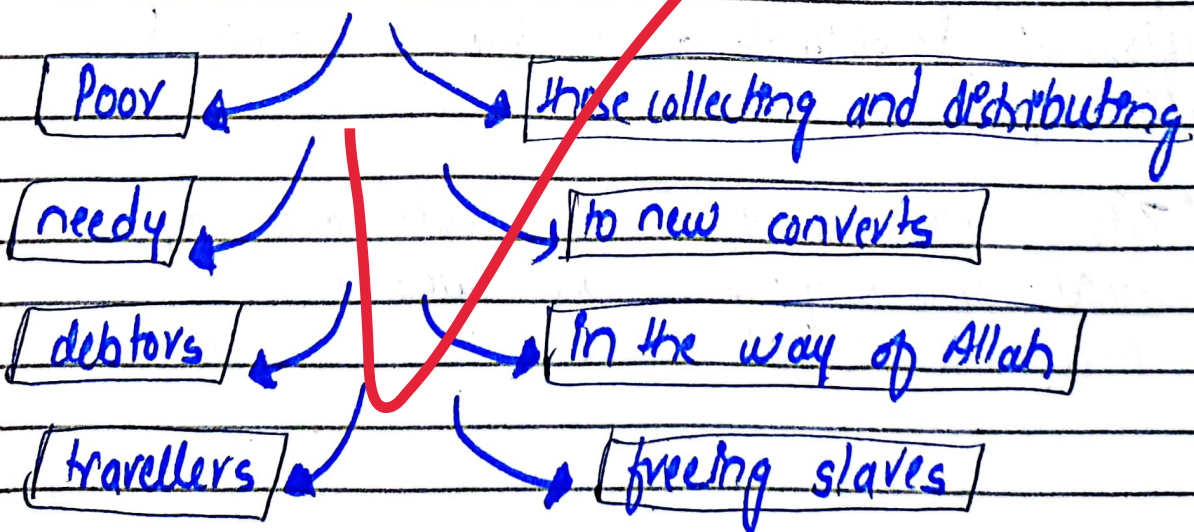 Poor those collecting and distributing
needy to new converts
debtors in the way of Allah
travellers freeing slaves